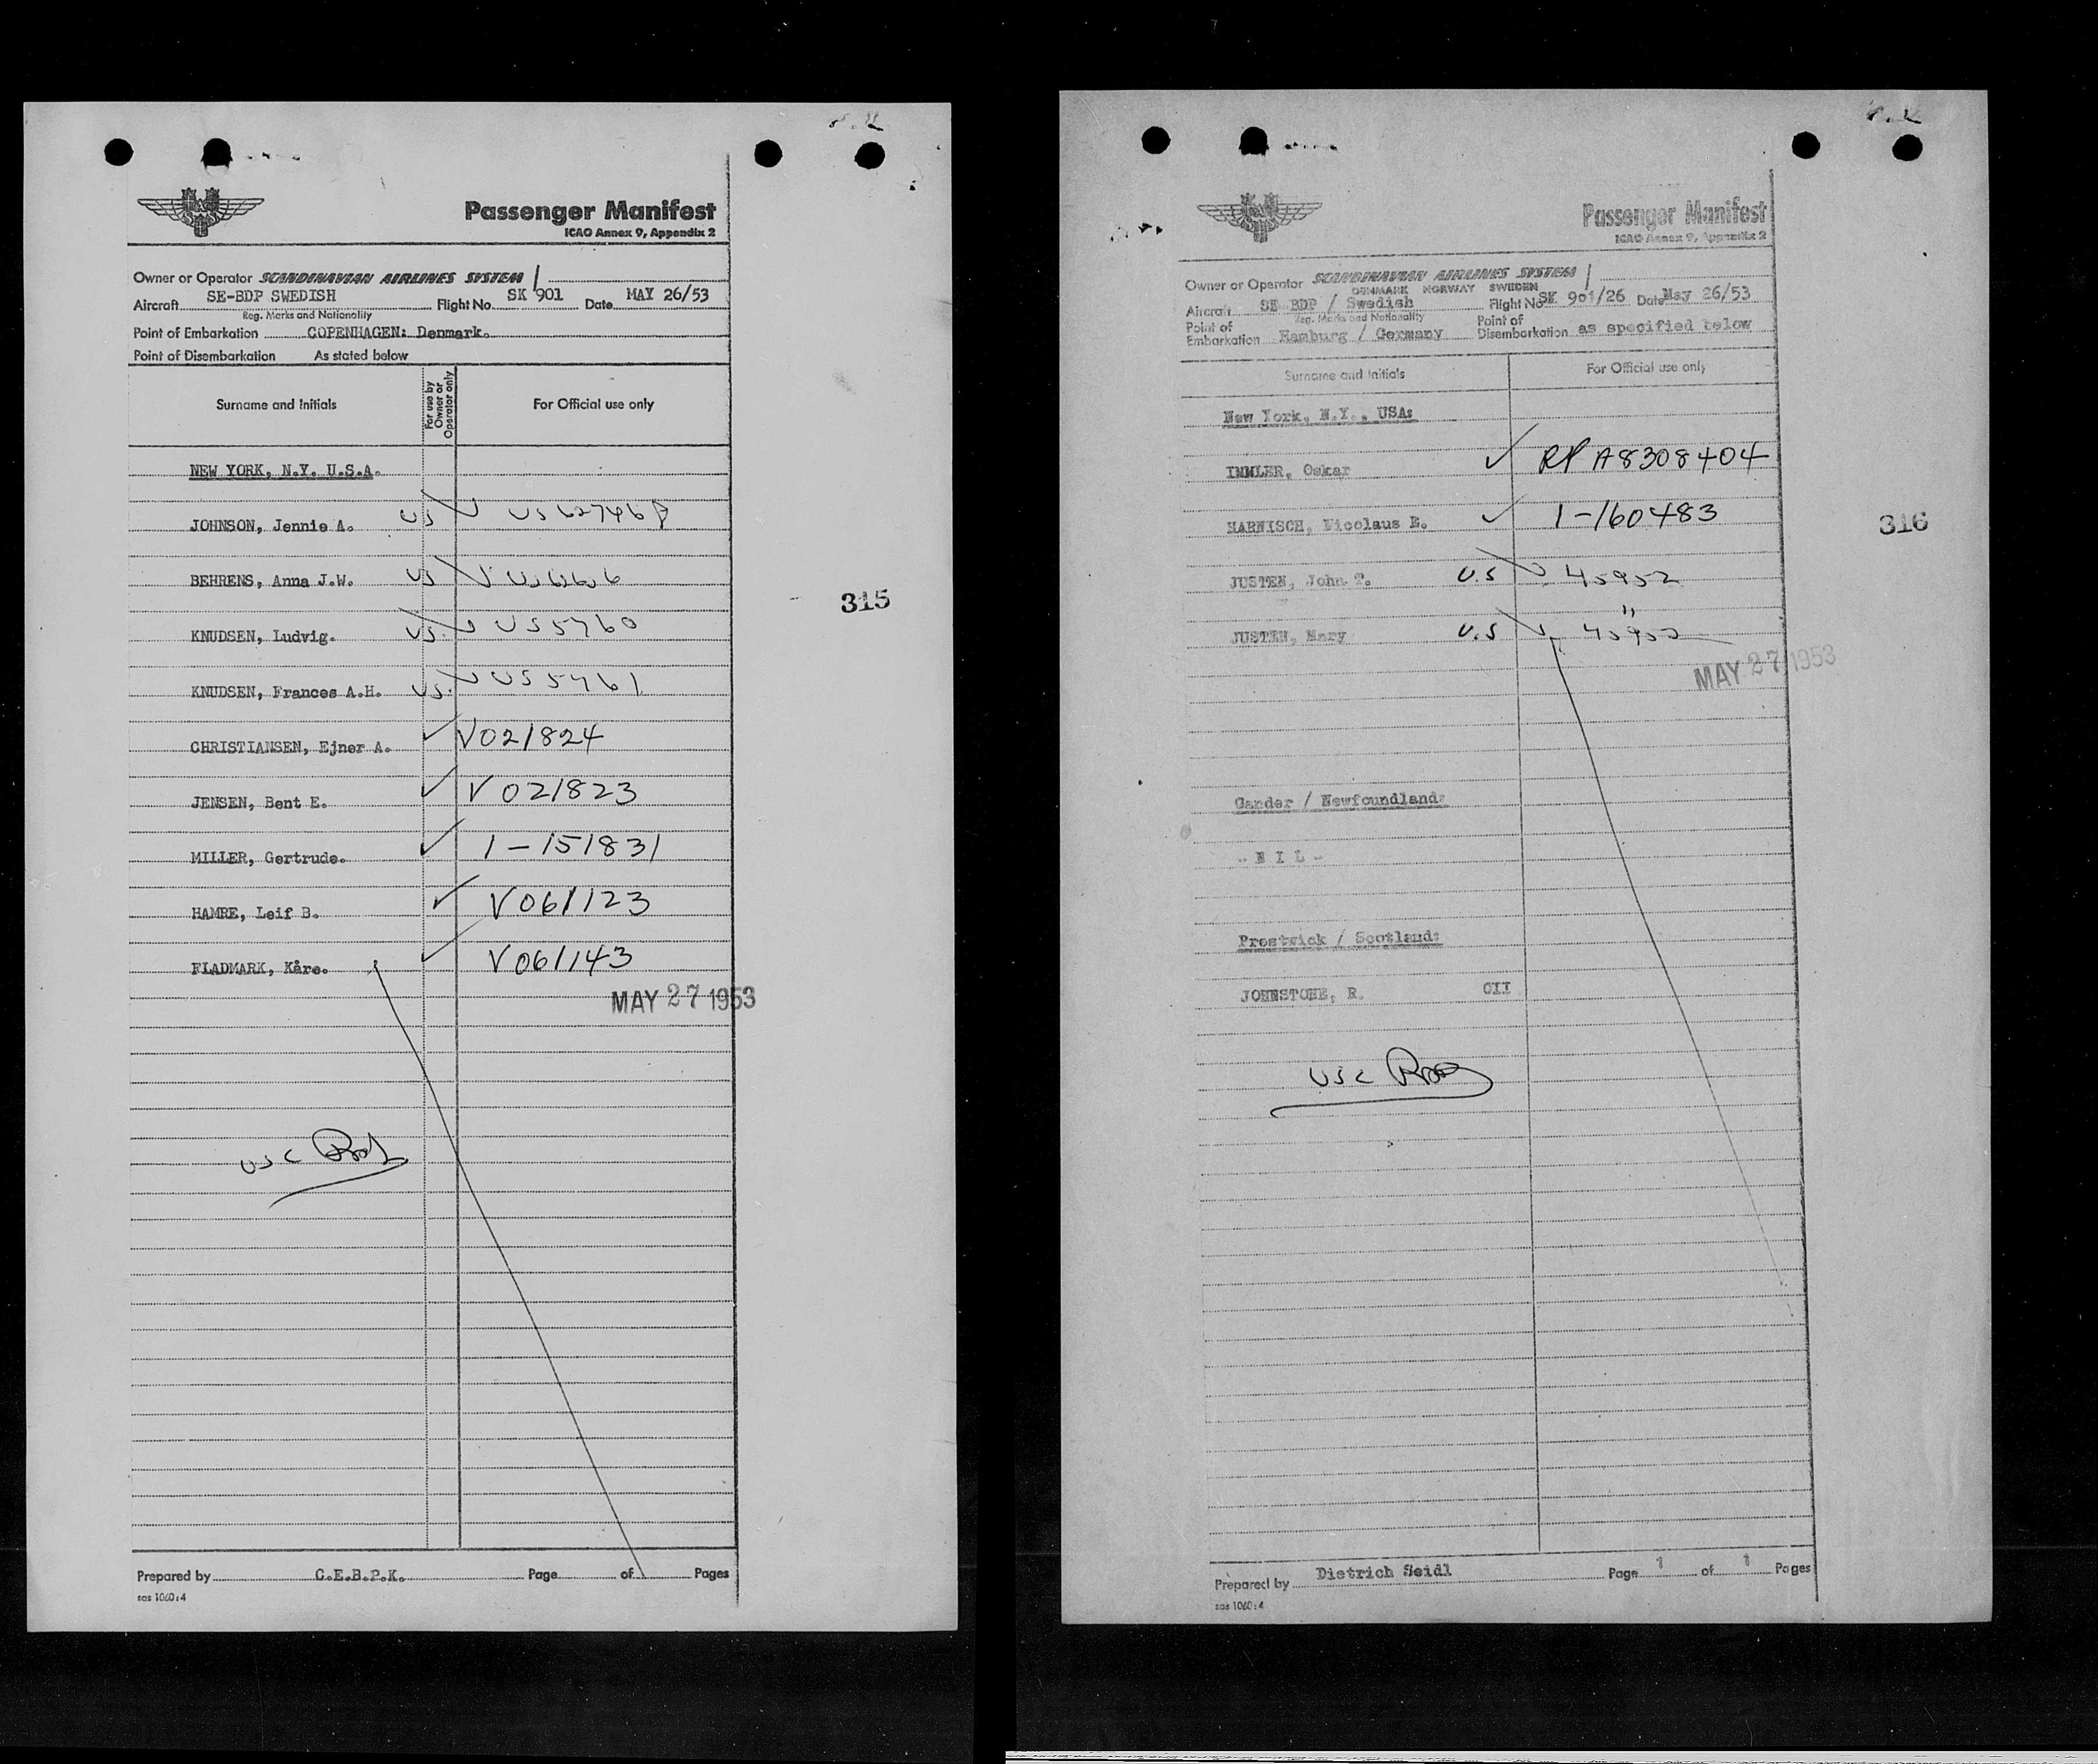 Passenger Manifest
ICAO Annex 9, Appendix 2
Owner or Operator SCANDINAVIAN AIRLINES SYSTEM
Aircraft SE-BDP SWEDISH Flight No. SK 901 Date MAY 26/53
Reg. Marks and Nationality
Point of Embarkation COPENHAGEN: Denmark.
Point of Disembarkation As stated below
Surname and Initials For use by Owner or Operator only For Official use only
NEW YORK, N.Y. U.S.A.
JOHNSON, Jennie A. US
BEHRENS, Anna J.W. US
KNUDSEN, Ludvig. US. US5760
KNUDSEN, Frances A.H. US. US5761
CHRISTIANSEN, Ejner A. V021824
JENSEN, Bent E. V021823
MILLER, Gertrude. 1-151831
HAMRE, Leif B. V061123
FLADMARK, Kåre. V061143
MAY 27 1953
315
USC
Prepared by C.E.B.P.K. Page of Pages
sas 1060:4
Passenger Manifest
ICAO Annex 9, Appendix 2
Owner or Operator SCANDINAVIAN AIRLINES SYSTEM
DENMARK NORWAY SWEDEN
Aircraft SE-BDP / Swedish Flight No. SK 901/26 Date May 26/53
Reg. Marks and Nationality
Point of Embarkation Hamburg / Germany Point of Disembarkation as specified below
Surname and Initials For Official use only
New York, N.Y., USA:
IMMLER, Oskar RP A8308404
HARNISCH, Nicolaus E. 1-160483
316
JUSTEN, John T. U.S 45952
"
JUSTEN, Mary U.S 45952
MAY 27 1953
Gander / Newfoundland:
- N I L -
Prestwick / Scotland:
JOHNSTONE, R. CII
USC
Prepared by Dietrich Seidl Page 1 of 1 Pages
sas 1060:4